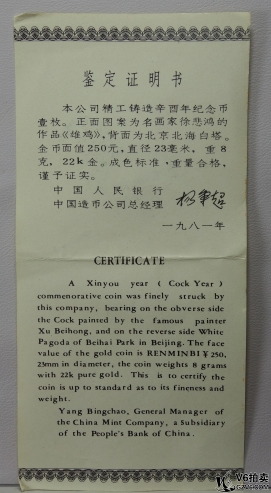 鉴定证明书
本公司精工铸造辛酉年纪念币
壹枚。正面图案为名画家徐悲鸿的
作品《雄鸡》,背面为北京北海白塔。
金币面值250元,直径23毫米,重8
克,22k金。成色标准·重量合格,
谨予证实。
中国人民银行
中国造币公司总经理
一九八一年
CERTIFICATE
A Xinyou year ( Cock Year )
commemorative coin was finely struck by
this company, bearing on the obverse side
the Cock painted by the famous painter
Xu Beihong, and on the reverse side White
Pagoda of Beihai Park in Beijing. The face
value of the gold coin is RENMINBI ¥ 250,
23mm in diameter, the coin weights 8 grams
with 22k pure gold. This is to certify the
coin is up to standard as to its fineness and
weight.
Yang Bingchao, General Manager of
the China Mint Company, a Subsidiary
of the People's Bank of China.
V6拍卖